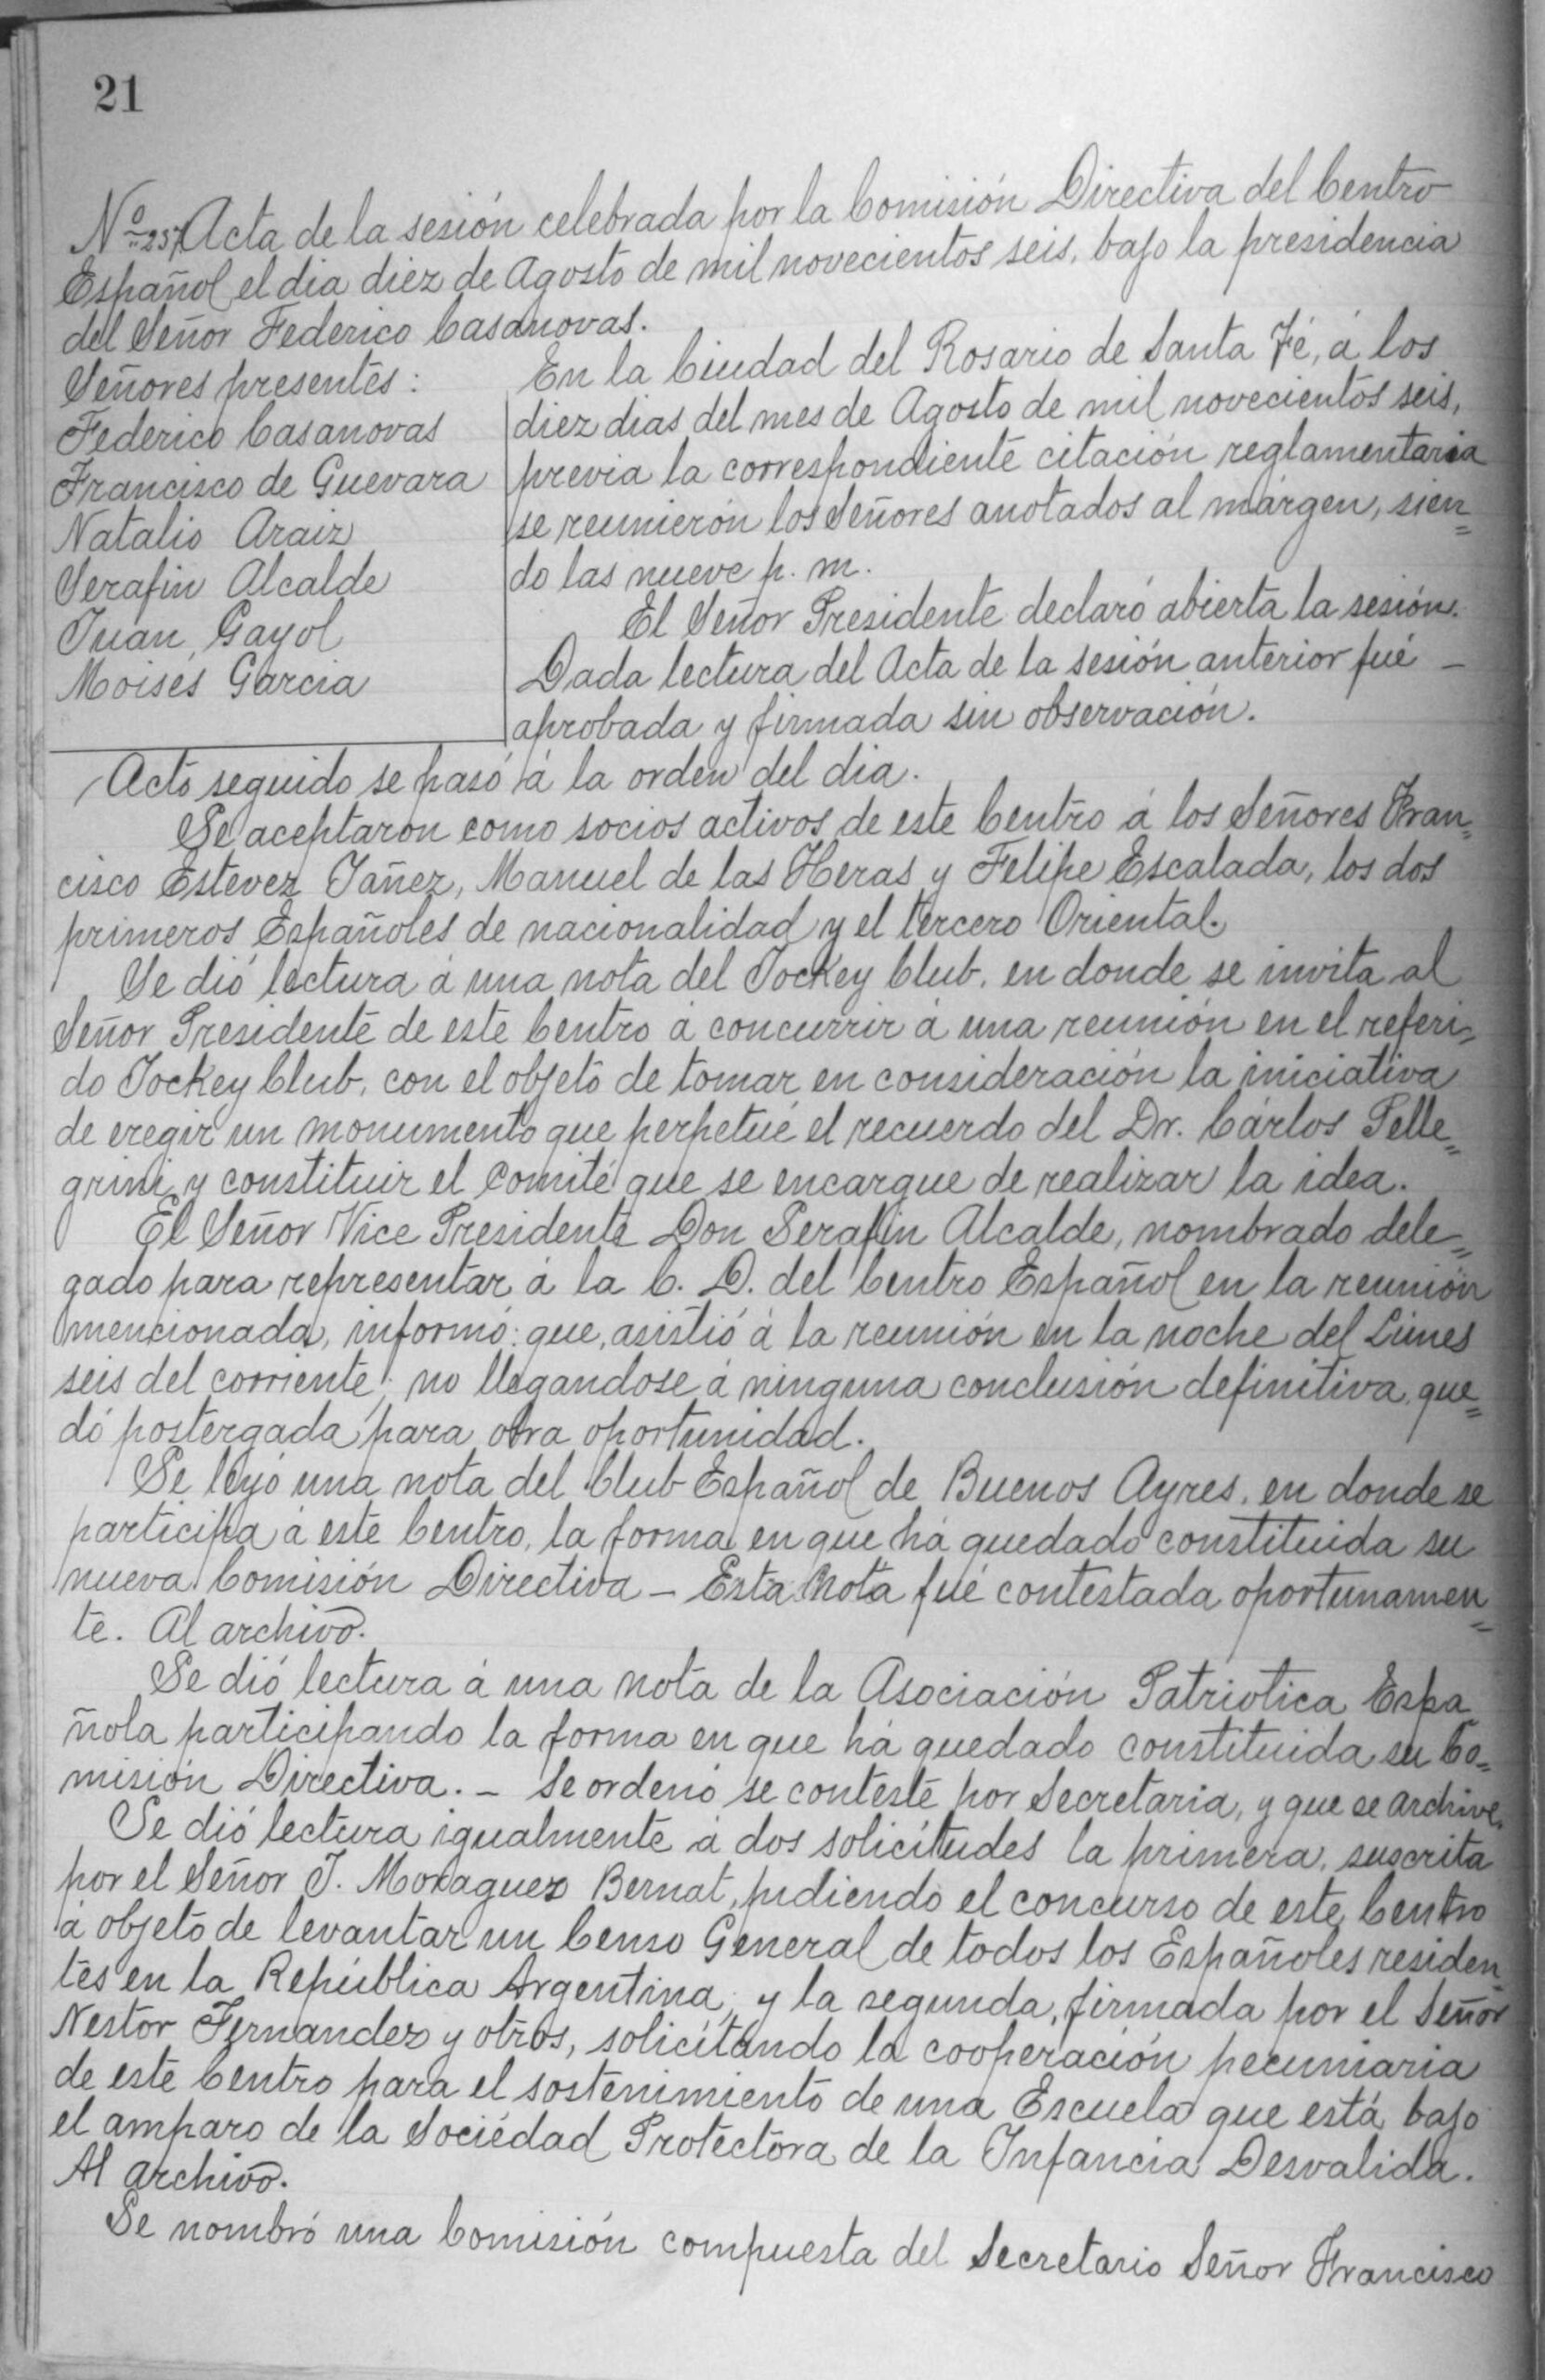 21
Nº 257 Acta de la sesión celebrada por la Comisión Directiva del Centro
Español el dia diez de Agosto de mil novecientos seis, bajo la presidencia
del Señor Federico Casanovas.
Señores presentes:
Federico Casanovas
Francisco de Guevara
Natalio Araiz
Serafin Alcalde
Juan Gayol
Moisés Garcia
En la Ciudad del Rosario de Santa Fé, á los
diez dias del mes de Agosto de mil novecientos seis,
previa la correspondiente citación reglamentaria
se reunieron los Señores anotados al márgen, sien=
do las nueve p. m.
El Señor Presidente declaró abierta la sesión.
Dada lectura del Acta de la sesión anterior fué –
aprobada y firmada sin observación.
Acto seguido se pasó á la orden del dia.
Se aceptaron como socios activos de este Centro á los Señores Fran=
cisco Estevez Yañez, Manuel de las Heras y Felipe Escalada, los dos
primeros Españoles de nacionalidad y el tercero Oriental.
Se dió lectura á una nota del Jockey Club, en donde se invita al
Señor Presidente de este Centro á concurrir á una reunión en el referi=
do Jockey Club, con el objeto de tomar en consideración la iniciativa
de eregir un monumento que perpetué el recuerdo del Dr. Cárlos Pelle=
grini y constituir el Comité que se encargue de realizar la idea.
El Señor Vice Presidente Don Serafin Alcalde, nombrado dele=
gado para representar á la C. D. del Centro Español en la reunión
mencionada, informó: que, asistió á la reunión en la noche del Lunes
seis del corriente; no llegandose á ninguna conclusión definitiva, que=
dó postergada para otra oportunidad.
Se leyó una nota del Club Español de Buenos Ayres, en donde se
participa á este Centro, la forma en que há quedado constituida su
nueva Comisión Directiva – Esta Nota fué contestada oportunamen=
te. Al archivo.
Se dió lectura á una nota de la Asociación Patriotica Espa
ñola participando la forma en que há quedado constituida su Co=
misión Directiva. – Se ordenó se conteste por Secretaria, y que se archive.
Se dió lectura igualmente á dos solicitudes la primera, suscrita
por el Señor J. Moraguez Bernat, pidiendo el concurso de este Centro
á objeto de levantar un Censo General de todos los Españoles residen=
tes en la República Argentina; y la segunda, firmada por el Señor
Nestor Fernandez y otros, solicitando la cooperación pecuniaria
de este Centro para el sostenimiento de una Escuela que está bajo
el amparo de la Sociedad Protectora de la Infancia Desvalida.
Al archivo.
Se nombró una Comisión compuesta del Secretario Señor Francisco